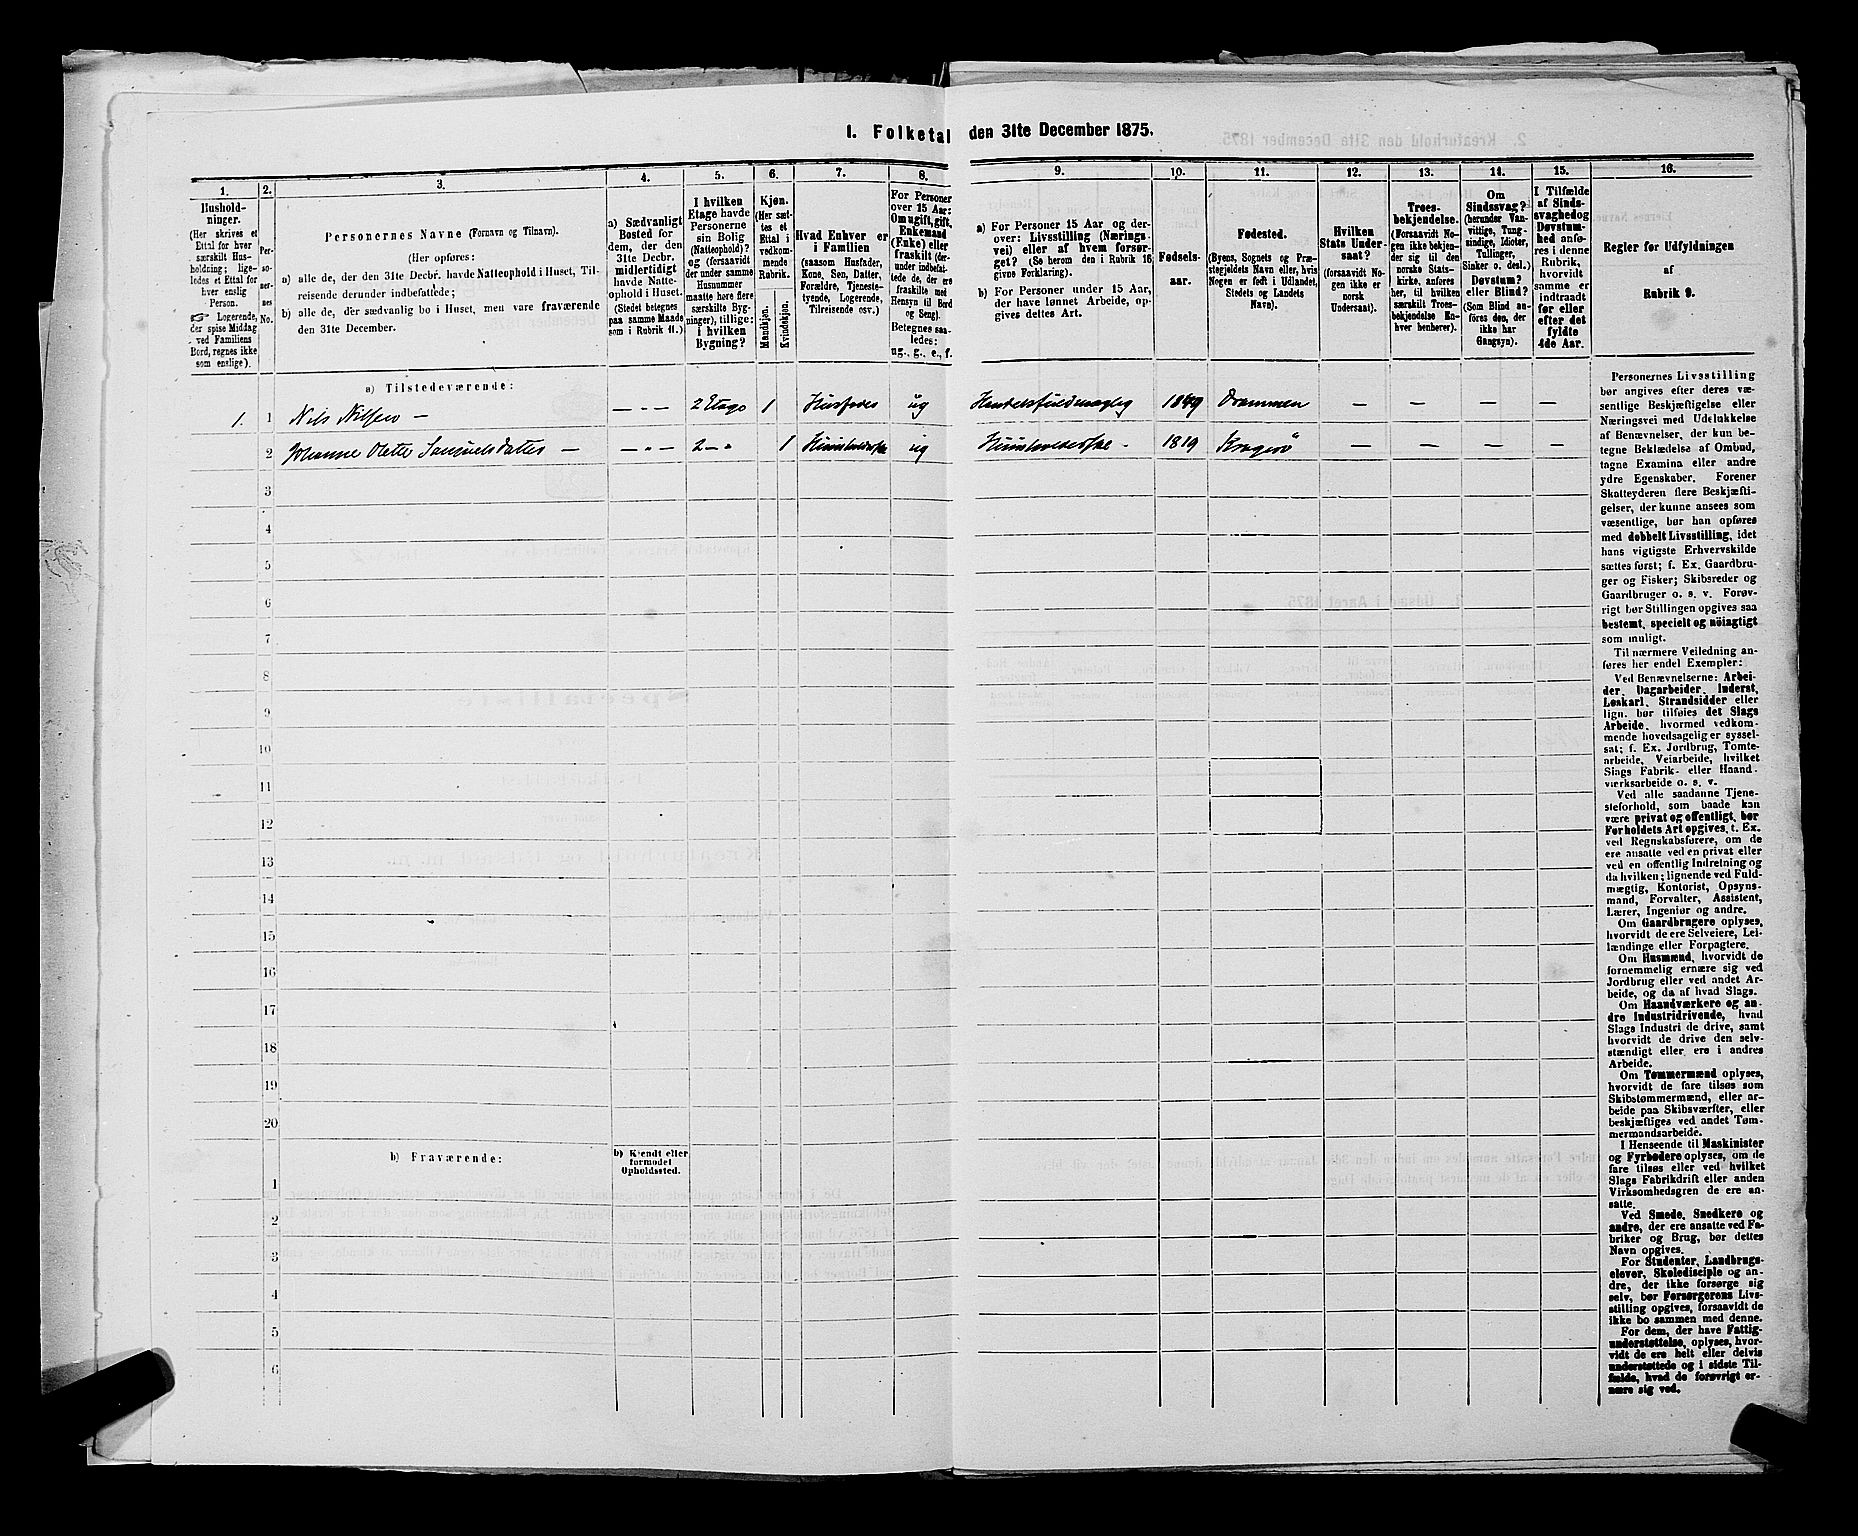 1. Folketal den 31te December 1875.
1.
2.
3.
4.
5.
6.
7.
8.
9.
10.
11.
12.
13.
14.
15.
16.
Hushold-
ninger.
(Her skrives et
Ettal for hver
særskilt Hus-
holdning; lige-
ledes et Ettal for
hver enslig
Person.
☞ Logerende,
der spise Middag
ved Familiens
Bord, regnes ikke
som enslige).
Per-
so-
ner-
nes
No.
Personernes Navne (Fornavn og Tilnavn).
(Her opføres:
a) alle de, der den 31te Decbr. havde Natteophold i Huset, Til-
reisende derunder indbefattede;
b) alle de, der sædvanlig bo i Huset, men vare fraværende
den 31te December.
a) Sædvanligt
Bosted for
dem, der den
31te Decbr.
midlertidigt
havde Natte-
ophold i Huset.
(Stedet betegnes
paa samme Maade
som i Rubrik 11.)
I hvilken
Etage havde
Personerne
sin Bolig
(Natteophold)?
og (forsaavidt
der under samme
Husnummer
maatte høre flere
særskilte Byg-
ninger), tillige:
i hvilken
Bygning?
Kjøn.
(Her sæt-
tes et
Ettal i
vedkom-
mende
Rubrik.
Mandkjøn.
Kvindekjøn.
Hvad Enhver er
i Familien
(saasom Husfader,
Kone, Søn, Datter,
Forældre, Tjeneste-
tyende, Logerende,
Tilreisende osv.)
For Personer
over 15 Aar:
Om ugift, gift,
Enkemand
(Enke) eller
fraskilt (der-
under indbefat-
tede de, der ere
fraskilte med
Hensyn til Bord
og Seng).
Betegnes saa-
ledes:
ug., g., e., f.
a) For Personer 15 Aar og der-
over: Livsstilling (Nærings-
vei) eller af hvem forsør-
get? (Se herom den i Rubrik 16
givne Forklaring).
b) For Personer under 15 Aar,
der have lønnet Arbeide, op-
gives dettes Art.
Fødsels-
aar.
Fødested.
(Byens, Sognets og Præ-
stegjeldets Navn eller, hvis
Nogen er født i Udlandet,
Stedets og Landets
Navn).
Hvilken
Stats Under-
saat?
(forsaavidt No-
gen ikke er
norsk
Undersaat).
Troes-
bekjendelse.
(Forsaavidt No-
gen ikke bekjen-
der sig til den
norske Stats-
kirke, anføres
her, til hvilken
særskilt Troes-
bekjendelse En-
hver henhører).
Om
Sindssvag?
(herunder Van-
vittige, Tung-
sindige, Idioter,
Tullinger,
Sinker o. desl.)
Døvstum?
eller Blind?
(Som Blind an-
føres den, der
ikke har
Gangsyn).
I Tilfælde
af Sinds-
svaghed og
Døvstum-
hed anfø-
res i denne
Rubrik,
hvorvidt
samme er
indtraadt
før eller
efter det
fyldte
4de Aar.
Regler for Udfyldningen
af
Rubrik 9.
a) Tilstedeværende:
1. 1 Nils Nilsen — — „ — 2 Etage 1 Husfader ug Handelsfuldmægtig 1849 Drammen — — — —
2 Johanne Olette Samuelsdatter — — „ — 2 — „ 1 Huusholderske ug Huusholderske - 1819 Kragerø — — — —
3
4
5
6
7
8
9
10
11
12
13
14
15
16
17
18
19
20
b) Fraværende:
b) Kjendt eller
formodet
Opholdssted.
1
2
3
4
5
6
Personernes Livsstilling
bør angives efter deres væ-
sentlige Beskjæftigelse eller
Næringsvei med Udelukkelse
af Benævnelser, der kun be-
tegne Beklædelse af Ombud,
tagne Examina eller andre
ydre Egenskaber. Forener
Skatteyderen flere Beskjæfti-
gelser, der kunne ansees som
væsentlige, bør han opføres
med dobbelt Livsstilling, idet
hans vigtigste Erhvervskilde
sættes først; f. Ex. Gaardbru-
ger og Fisker; Skibsreder og
Gaardbruger o. s. v. Forøv-
rigt bør Stillingen opgives saa
bestemt, specielt og nöiagtigt
som muligt.
Til nærmere Veiledning an-
føres her endel Exempler:
Ved Benævnelserne: Arbei-
der, Dagarbeider, Inderst,
Løskarl, Strandsidder eller
lign. bør tilføies det Slags
Arbeide, hvormed vedkom-
mende hovedsagelig er syssel-
sat; f. Ex. Jordbrug, Tomte-
arbeide, Veiarbeide, hvilket
Slags Fabrik- eller Haand-
værksarbeide o. s. v.
Ved alle saadanne Tjene-
steforhold, som baade kan
være privat og offentligt, bør
Forholdets Art opgives, t. Ex.
ved Regnskabsførere, om de
ere ansatte ved en privat eller
ved en offentlig Indretning og
da hvilken; lignende ved Fuld-
mægtig, Kontorist, Opsyns-
mand, Forvalter, Assistent,
Lærer, Ingeniør og andre.
Om Gaardbrugere oplyses,
hvorvidt de ere Selveiere, Lei-
lændinge eller Forpagtere.
Om Husmænd, hvorvidt de
fornemmelig ernære sig ved
Jordbrug eller ved andet Ar-
beide, og da af hvad Slags.
Om Haandværkere og an-
dre Industridrivende, hvad
Slags Industri de drive, samt
hvorvidt de drive den selv-
stændigt eller ere i andres
Arbeide.
Om Tømmermænd oplyses,
hvorvidt de fare tilsøs som
Skibstømmermænd, eller ar-
beide paa Skibsværfter, eller
beskjæftiges ved andet Tøm-
mermandsarbeide.
I Henseende til Maskinister
og Fyrbødere oplyses, om de
fare tilsøs eller ved hvilket
Slags Fabrikdrift eller anden
Virksomhedsgren de ere an-
satte.
Ved Smede, Snedkere og
andre, der ere ansatte ved Fa-
briker og Brug, bør dettes
Navn opgives.
For Studenter, Landbrugs-
elever, Skoledisciple og an-
dre, der ikke forsørge sig
selv, bør Forsørgerens Livs-
stilling opgives, forsaavidt de
ikke bo sammen med denne.
For dem, der have Fattig-
understøttelse, oplyses, hvor-
vidt de ere helt eller delvis
understøttede og i sidste Til-
fælde, hvad de forøvrigt er-
nære sig ved.